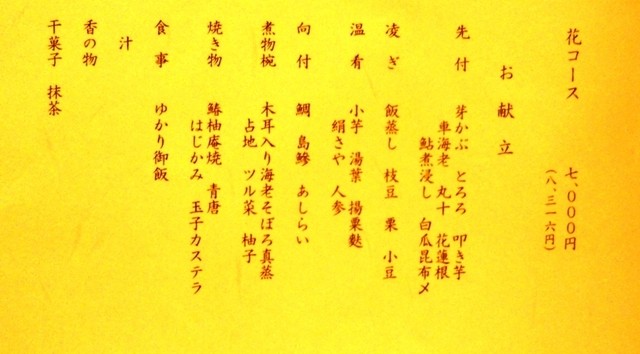 花コース 七、000円
(八、三一六円)
お献立
先付 芽かぶ とろろ 叩き芋
車海老 丸十 花蓮根
鮎煮浸し 白瓜昆布〆
凌ぎ 飯蒸し 枝豆 栗 小豆
温肴 小芋 湯葉 揚粟麩
絹さや 人参
向付 鯛 島鰺 あしらい
煮物椀 木耳入り海老そぼろ真蒸
占地 ツル菜 柚子
焼き物 鰆柚庵焼 青唐
はじかみ 玉子カステラ
食事 ゆかり御飯
汁
香の物
干菓子 抹茶